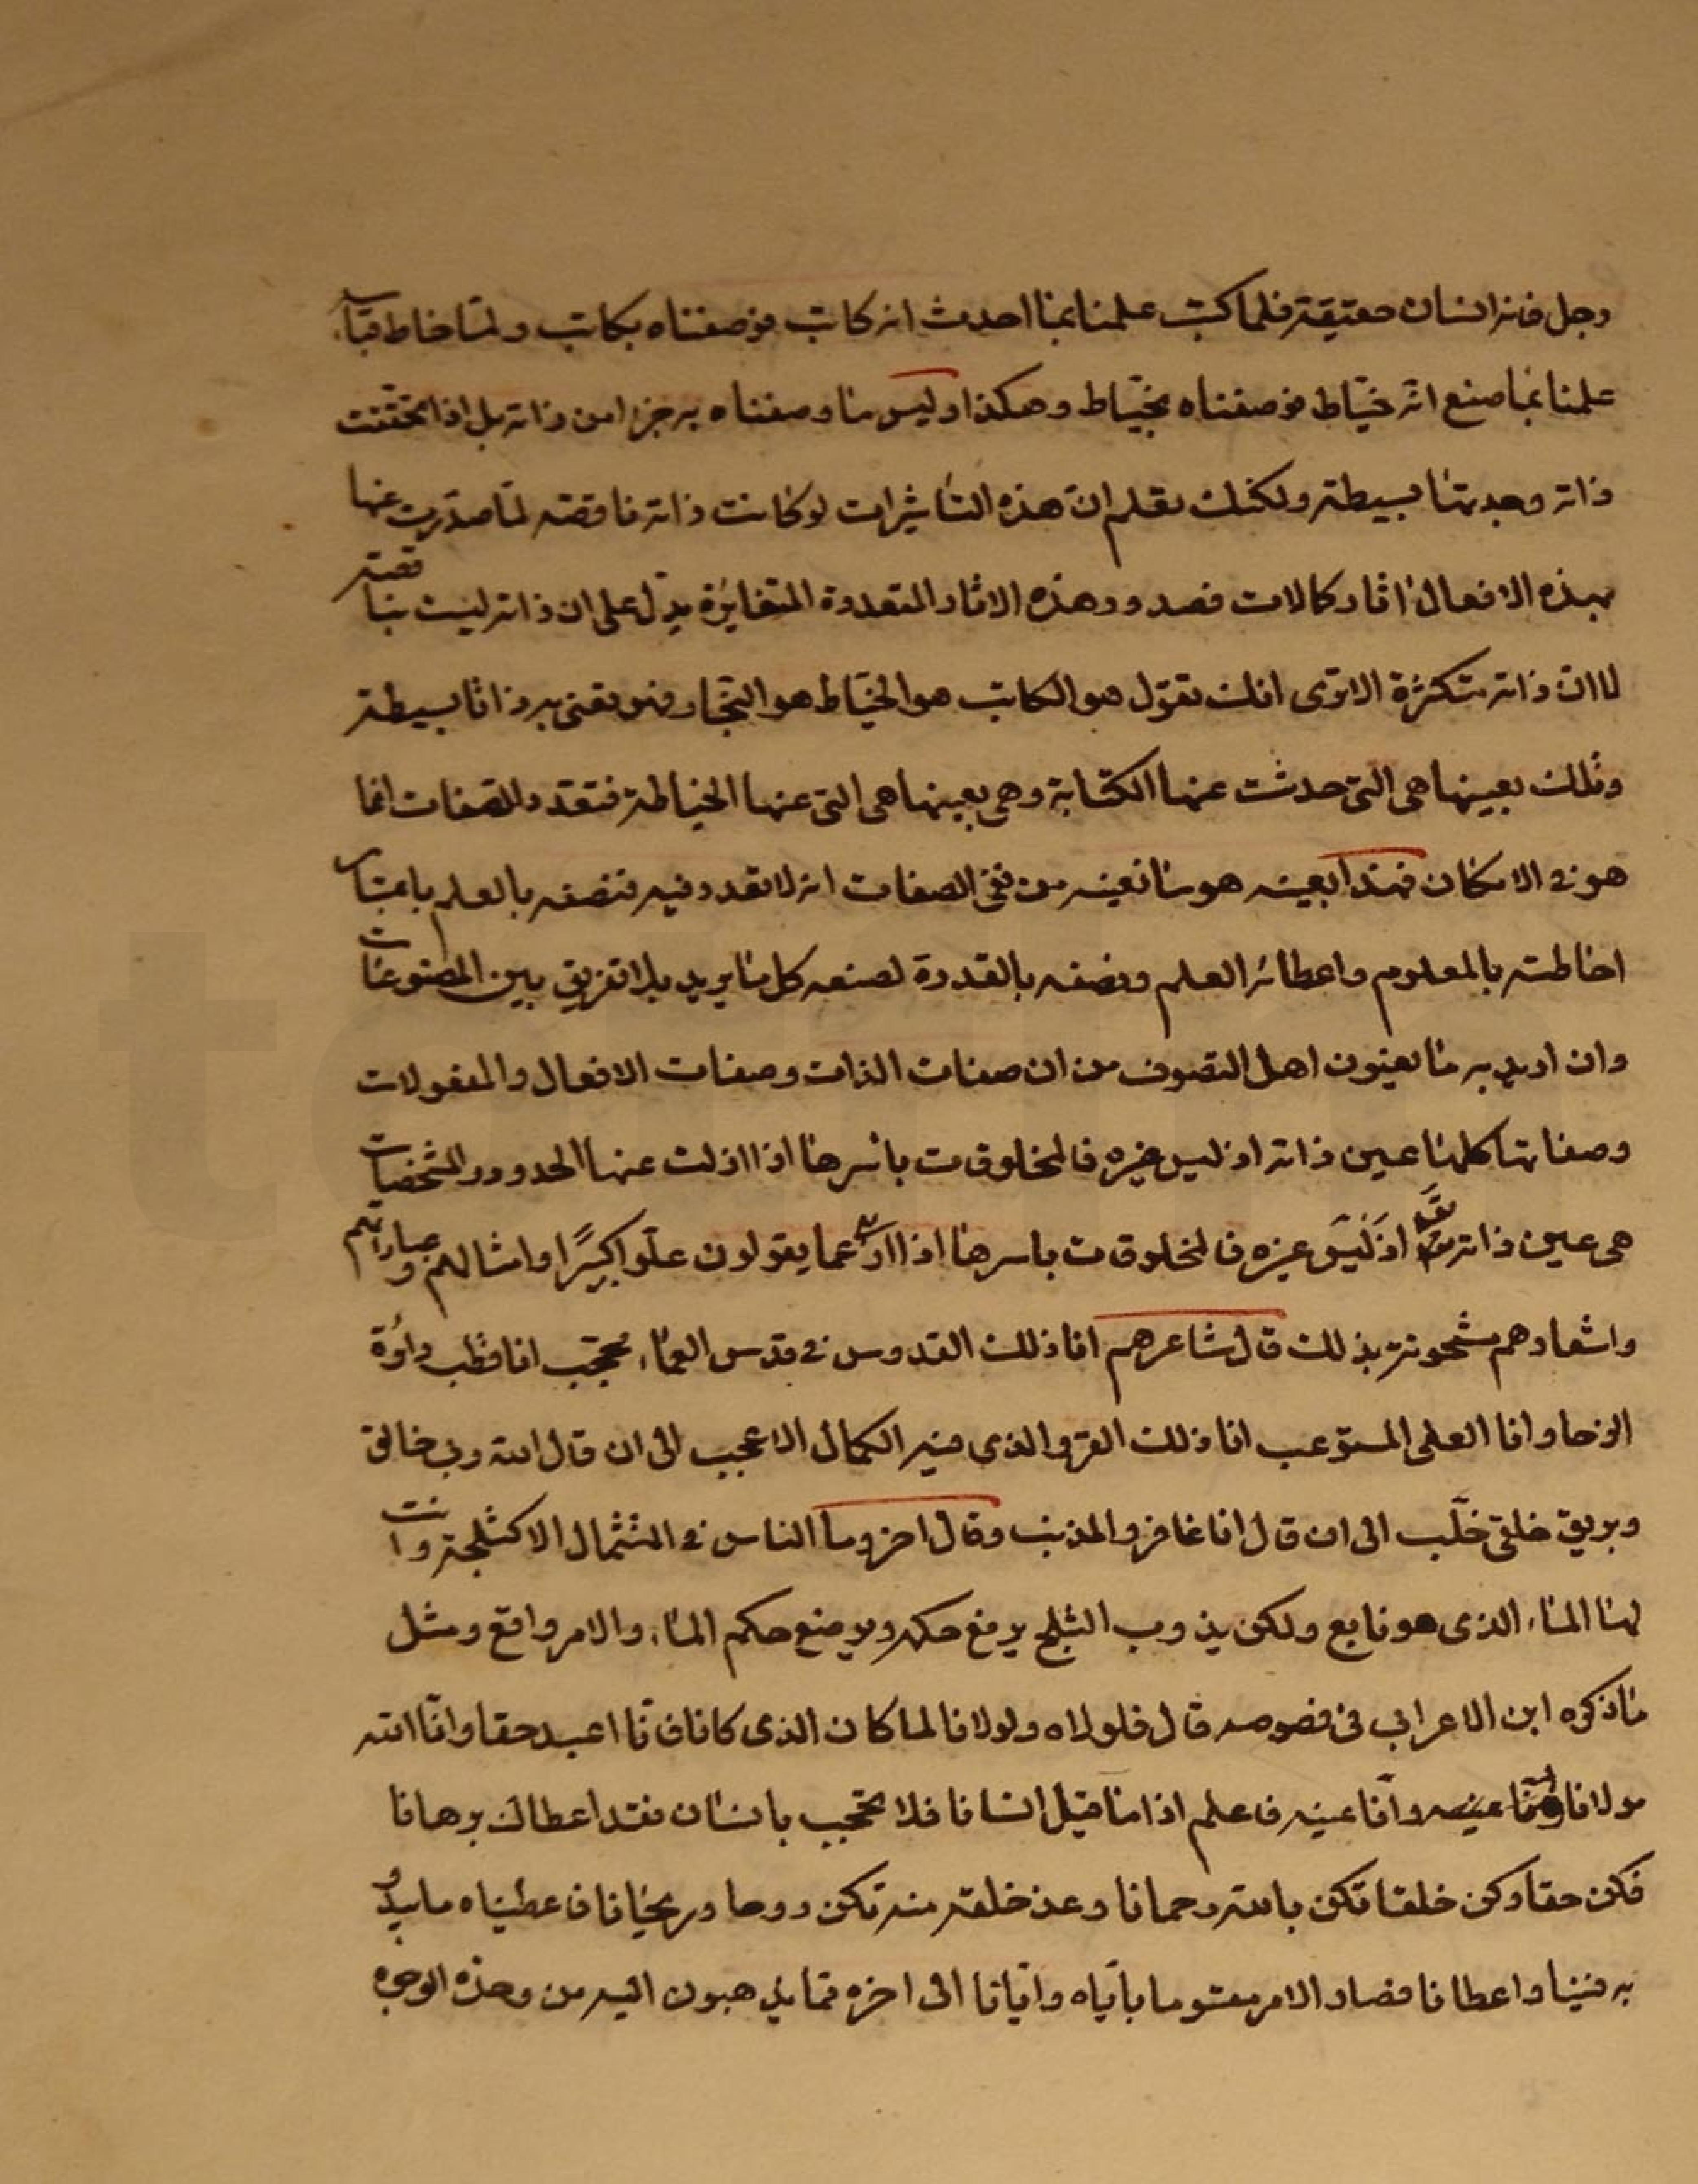 رجل فانه انسان حقيقة فلما كتب علمنا بما احدث انه كاتب فوصفناه بكاتب ولما خاط قباء
علمنا بما صنع انه خياط فوصفناه بخياط وهكذا وليس ما وصفناه به جزءا من ذاته بل اذا تحققت
ذاته وجدتها بسيطة ولكنك تعلم ان هذه التاثيرات لو كانت ذاته ناقصة لما صدرت عنها
بهذه الافعال اثار كمالات فصدور هذه الاثار المتعددة المتغايرة يدل على ان ذاته ليست بناقصة
لا ان ذاته متكثرة الا ترى انك تقول هو الكاتب هو الخياط هو النجار فهو تعنى به ذاتا بسيطة
وتلك بعينها هى التى حدثت عنها الكتابة وهى بعينها هى التى عنها الخياطة فتعدد الصفات انما
هو فى الامكان فهذا بعينه هو ما نعنيه من نفى الصفات انه لا تعدد فيه فنصفه بالعلم باعتبار
احاطته بالمعلوم واعطائه العلم ونصفه بالقدرة لصنعه كل ما يريد بلا تفريق بين المصنوعات
وان اريد به ما يعنيون اهل التصوف من ان صفات الذات وصفات الافعال والمفعولات
وصفاتها كلها عين ذاته اذ ليس غيره فالمخلوقات باسرها اذا ازلت عنها الحدود والمشخصات
هى عين ذاته اذ ليس غيره فالمخلوقات باسرها اذا عما يقولون علوا كبيرا وامثالهم وعباراتهم
واشعارهم مشحونة بذلك قال شاعرهم انا ذلك القدوس فى قدس العماء محجب انا قطب دائرة
الرحا وانا العلى المستوعب انا ذلك الفرد الذى فيه الكمال الاعجب الى ان قال الله ربى خالق
وبريق خلقى خلب الى ان قال انا غافر والمذنب وقال اخر وما الناس فى التمثال الا كثلجة وانت
لها الماء الذى هو نابع ولكن يذوب الثلج يرفع حكمه ويوضع حكم الماء والامر واقع ومثل
ما ذكره ابن الاعرابى فى فصوصه قال فلولاه ولولانا لما كان الذى كانا فانا اعبد حقا وانا الله
مولانا وانا عينه فاعلم اذا ما قيل انسانا فلا تحجب بانسان فقد اعطاك برهانا
فكن حقا وكن خلقا تكن بالله رحمانا وغذ خلقه منه تكن روحا وريحانا فاعطيناه ما يبدو
به فينا واعطانا فصار الامر مقسوما باياه وايانا الى اخره مما يذهبون اليه من وحدة الوجود